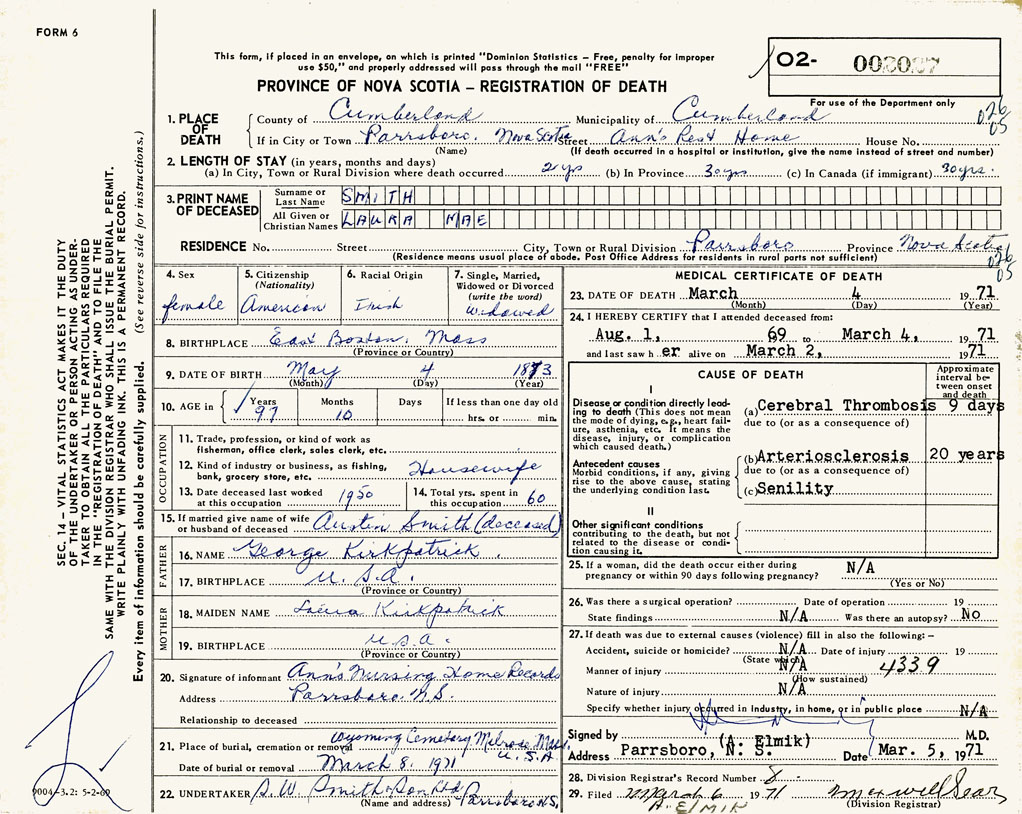 FORM 6
This form, if placed in an envelope, on which is printed "Dominion Statistics – Free, penalty for improper
use $50," and properly addressed will pass through the mail "FREE"
PROVINCE OF NOVA SCOTIA – REGISTRATION OF DEATH
02-
For use of the Department only
026
05
1. PLACE OF DEATH
County of Cumberland Municipality of Cumberland
If in City or Town Parrsboro, Nova Scotia Street Ann's Rest Home House No.
(Name) (If death occurred in a hospital or institution, give the name instead of street and number)
2. LENGTH OF STAY (in years, months and days)
(a) In City, Town or Rural Division where death occurred 2 yrs (b) In Province 30 yrs (c) In Canada (if immigrant) 30 yrs.
3. PRINT NAME OF DECEASED
Surname or Last Name SMITH
All Given or Christian Names LAURA MAE
RESIDENCE No. Street City, Town or Rural Division Parrsboro Province Nova Scotia
(Residence means usual place of abode. Post Office Address for residents in rural parts not sufficient)
026
05
4. Sex
female
5. Citizenship
(Nationality)
American
6. Racial Origin
Irish
7. Single, Married,
Widowed or Divorced
(write the word)
Widowed
8. BIRTHPLACE East Boston, Mass
(Province or Country)
9. DATE OF BIRTH May 4 1873
(Month) (Day) (Year)
10. AGE in Years Months Days If less than one day old
97 10 hrs. or min.
OCCUPATION
11. Trade, profession, or kind of work as
fisherman, office clerk, sales clerk, etc.
12. Kind of industry or business, as fishing,
bank, grocery store, etc. Housewife
13. Date deceased last worked
at this occupation 1950
14. Total yrs. spent in
this occupation 60
15. If married give name of wife
or husband of deceased Austin Smith (deceased)
FATHER
16. NAME George Kirkpatrick
17. BIRTHPLACE U.S.A.
(Province or Country)
MOTHER
18. MAIDEN NAME Laura Kirkpatrick
19. BIRTHPLACE U.S.A.
(Province or Country)
20. Signature of informant Ann's Nursing Home Records
Address Parrsboro, N.S.
Relationship to deceased
21. Place of burial, cremation or removal Wyoming Cemetary Melrose, Mass. U.S.A.
Date of burial or removal March 8, 1971
22. UNDERTAKER D.W. Smith & Son Ltd Parrsboro N.S.
(Name and address)
MEDICAL CERTIFICATE OF DEATH
23. DATE OF DEATH March 4 1971
(Month) (Day) (Year)
24. I HEREBY CERTIFY that I attended deceased from:
Aug. 1, 69 to March 4, 1971
and last saw her alive on March 2, 1971
CAUSE OF DEATH
Approximate
interval be-
tween onset
and death
I
Disease or condition directly lead-
ing to death (This does not mean
the mode of dying, e.g., heart fail-
ure, asthenia, etc. It means the
disease, injury, or complication
which caused death.)
(a) Cerebral Thrombosis 9 days
due to (or as a consequence of)
Antecedent causes
Morbid conditions, if any, giving
rise to the above cause, stating
the underlying condition last.
(b) Arteriosclerosis 20 years
due to (or as a consequence of)
(c) Senility
II
Other significant conditions
contributing to the death, but not
related to the disease or condi-
tion causing it.
25. If a woman, did the death occur either during
pregnancy or within 90 days following pregnancy? N/A
(Yes or No)
26. Was there a surgical operation? Date of operation 19
State findings N/A Was there an autopsy? No
27. If death was due to external causes (violence) fill in also the following: –
Accident, suicide or homicide? N/A Date of injury 19
(State which)
Manner of injury N/A 4339
(How sustained)
Nature of injury N/A
Specify whether injury occurred in industry, in home, or in public place N/A
Signed by (A. Elmik) M.D.
Address Parrsboro, N. S. Date Mar. 5, 1971
28. Division Registrar's Record Number 8
29. Filed March 6 1971 Maxwell Sear
A. ELMIK (Division Registrar)
SEC. 14 – VITAL STATISTICS ACT MAKES IT THE DUTY
OF THE UNDERTAKER OR PERSON ACTING AS UNDER-
TAKER TO OBTAIN ALL THE PARTICULARS REQUIRED
IN THE "REGISTRATION OF DEATH" AND TO FILE THE
SAME WITH THE DIVISION REGISTRAR WHO SHALL ISSUE THE BURIAL PERMIT.
WRITE PLAINLY WITH UNFADING INK. THIS IS A PERMANENT RECORD.
Every item of information should be carefully supplied. (See reverse side for instructions.)